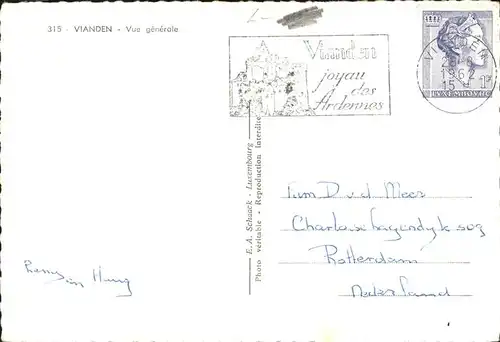 315 - VIANDEN - Vue générale
Vianden
joyau
des
Ardennes
VIANDEN
1962
LUXEMBOURG
E. A. Schaack - Luxembourg
Photo véritable - Reproduction interdite
Fam D v d Meer
Rotterdam
Nederland